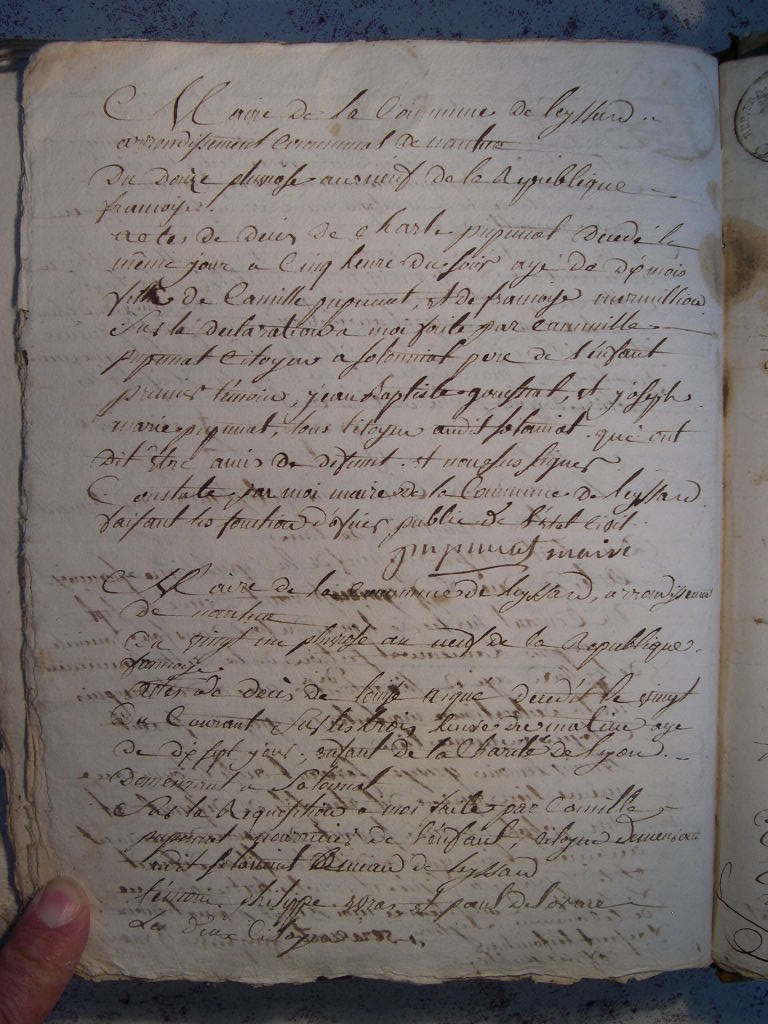 Maire de la Commune de leyssard
arrondissement communal de nantua
Du douze pluviose an neuf de la Republique
francoise.
actes de deces de Charle pupunat decedé le
même jour a Cinq heure du soir agé de dix mois
fils de Camille pupunat, et de francoise mermillion
Sur la declaration a moi faite par Cammille
pupunat Citoyen a solomiat pere de l'enfant
premier témoin, jean Baptiste et joseph
marie pupunat, tous Citoyen audit solomiat qui ont
dit être amis de difunt et non signer
Constate par moi maire de la Commune de leyssard
faisant les fonction d'oficier public de l'état civil
pupunat maire
Maire de la Commune de leyssard, arrondissement
de nantua
Du vingt un pluviose an neuf de la Republique
francoise
actes de deces de decedé le vingt
Du Courant sur les trois heure de matin agé
de dix sept jour, enfant de la Charité de lyon
Demeurant a Solomiat
Sur la Requisition a moi faite par Camille
pupunat nourricier de l'enfant, citoyen demeurant
audit solomiat de leyssard
témoin philippe et paul
Les deux Citoyen